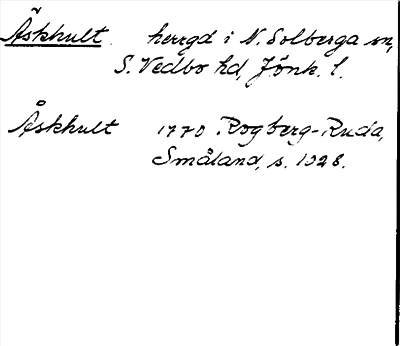 Åskhult herrgd i N. Solberga sn,
S. Vedbo hd, Jönk. l.
Åskhult 1770 Rogberg-Ruda,
Småland, s. 1028.